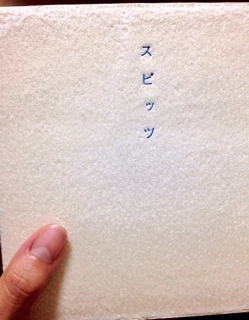 スピッツ